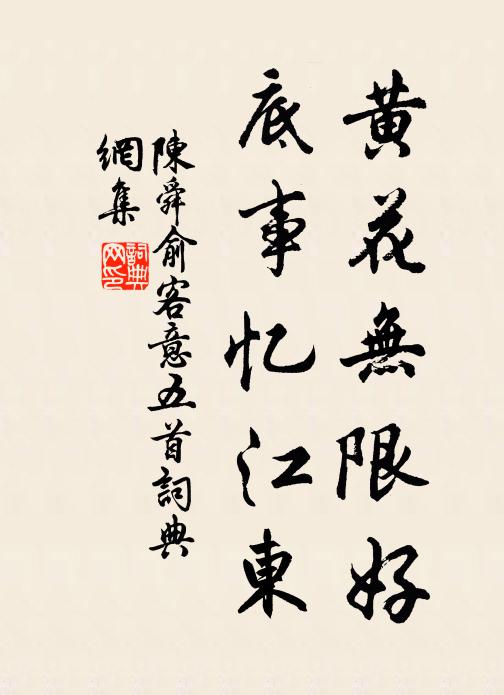 黄花無限好
底事忆江東
陳舜俞客意五首詞典
網集
詞典网印